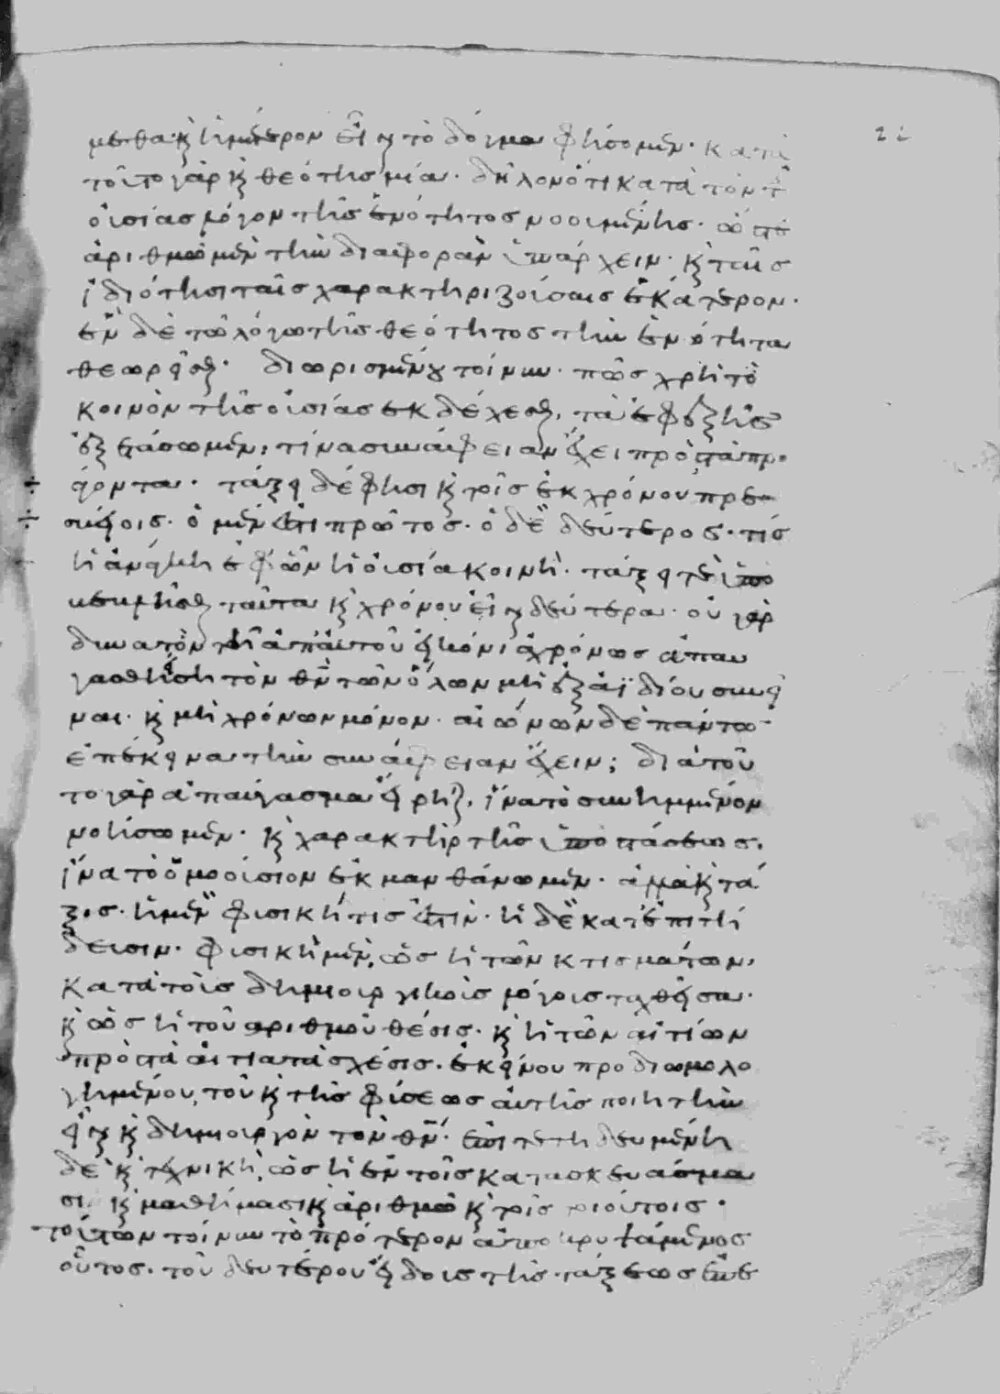 μεθα· κ ἡμέτερον εἶναι τὸ δόγμα φήσομεν· κατὰ
τοῦτο γὰρ κ θεότης μία· δηλονότι κατὰ τὸν τῆς
οὐσίας λόγον τῆς ἑνότητος νοουμένης· ὥστε
ἀριθμῷ μὲν τὴν διαφορὰν ὑπάρχειν· κ ταῖς
ἰδιότησι ταῖς χαρακτηριζούσαις ἑκάτερον·
ἐν δὲ τῷ λόγῳ τῆς θεότητος τὴν ἑνότητα
θεωρεῖσθαι· διωρισμένου τοίνυν· πῶς χρὴ τὸ
κοινὸν τῆς οὐσίας ἐκδέχεσθαι, τὰ ἐφεξῆς
ἐξετάσωμεν, τίνα συνάφειαν ἔχει πρὸς τὰ προ
άγοντα· τάξει δέ φησι κ τοῖς ἐκ χρόνου πρεσ
ὁ μέν ἐστι πρῶτος· ὁ δὲ δεύτερος· τίς
ἡ ἀνάγκη ἐφ' ὧν ἡ οὐσία κοινή· τάξει τε ὑπο
ταῦτα κ χρόνου εἶναι δεύτερα· οὐ γὰρ
δυνατὸν τῇ ἀπ' αὐτοῦ εἰκόνι ἀχρόνως ἀπαυ
γασθείσῃ τὸν θν τῶν ὅλων μὴ ἐξ ἀϊδίου συνεῖ
ναι· κ μὴ χρόνων μόνον· αἰώνων δὲ πάντων
ἐπέκεινα τὴν συνάφειαν ἔχειν; διὰ τοῦ
το γὰρ ἀπαύγασμα εἴρηται, ἵνα τὸ συνημμένον
νοήσωμεν· κ χαρακτὴρ τῆς ὑποστάσεως,
ἵνα τὸ ὁμοούσιον ἐκμανθάνωμεν· ἀλλὰ κ τά
ξις· ἡ μὲν φυσική τις ἐστίν· ἡ δὲ κατ' ἐπιτή
δευσιν· φυσικὴ μὲν, ὡς ἡ τῶν κτισμάτων,
κατὰ τοὺς δημιουργικοὺς λόγους ταχθεῖσα·
κ ὡς ἡ τοῦ ἀριθμοῦ θέσις· κ ἡ τῶν αἰτίων
πρὸς τὰ αἰτιατὰ σχέσις· ἐκείνου προδιωμολο
γημένου, τοῦ κ τῆς φύσεως αὐτῆς ποιητὴν
εἶναι κ δημιουργὸν τὸν θν· ἐπιτετηδευμένη
δὲ κ τεχνικὴ, ὡς ἡ ἐν τοῖς κατασκευάσμα
σι κ μαθήμασι κ ἀριθμῷ κ τοῖς τοιούτοις·
τούτων τοίνυν τὸ πρότερον ἀποκρυψάμενος
οὗτος· τοῦ δευτέρου εἴδους τῆς τάξεως ἐπε